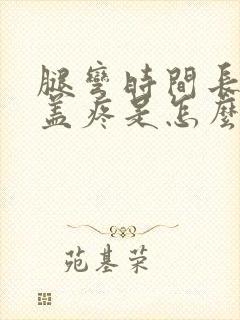 腿彎時間長
蓋疼是怎麼
苑基荣